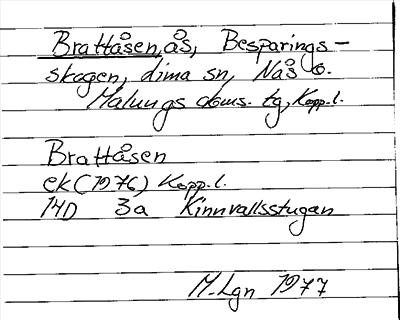 Brattåsen, ås, Besparings-
skogen, Lima sn, Nås o.
Malungs doms. tg, Kopp.l.
Brattåsen
ek (1976) Kopp.l.
14D 3a Kinnvallsstugan
M.Lgn 1977